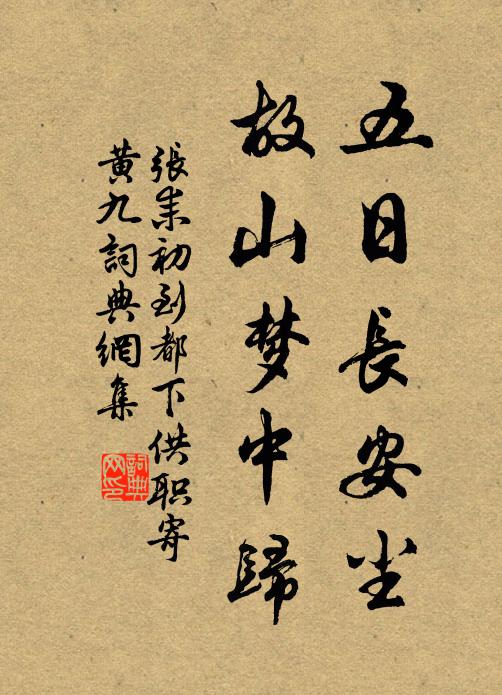 五日長安尘
故山梦中歸
張耒初到都下供职寄
黃九詞典網集
詞典
网印